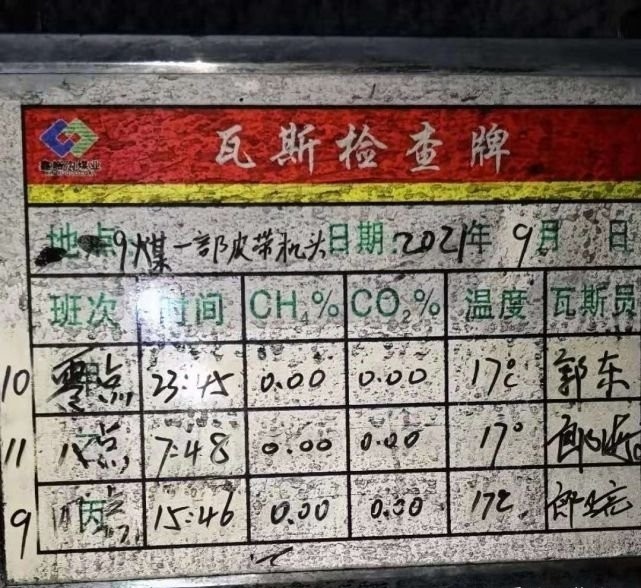 瓦斯检查牌
地点 9煤一部皮带机头 日期 2021年 9月 日
班次 时间 CH₄% CO₂% 温度 瓦斯员
10 零点 23:45 0.00 0.00 17℃ 郭东
11 八点 7:48 0.00 0.00 17°
9 四点 15:46 0.00 0.00 17℃